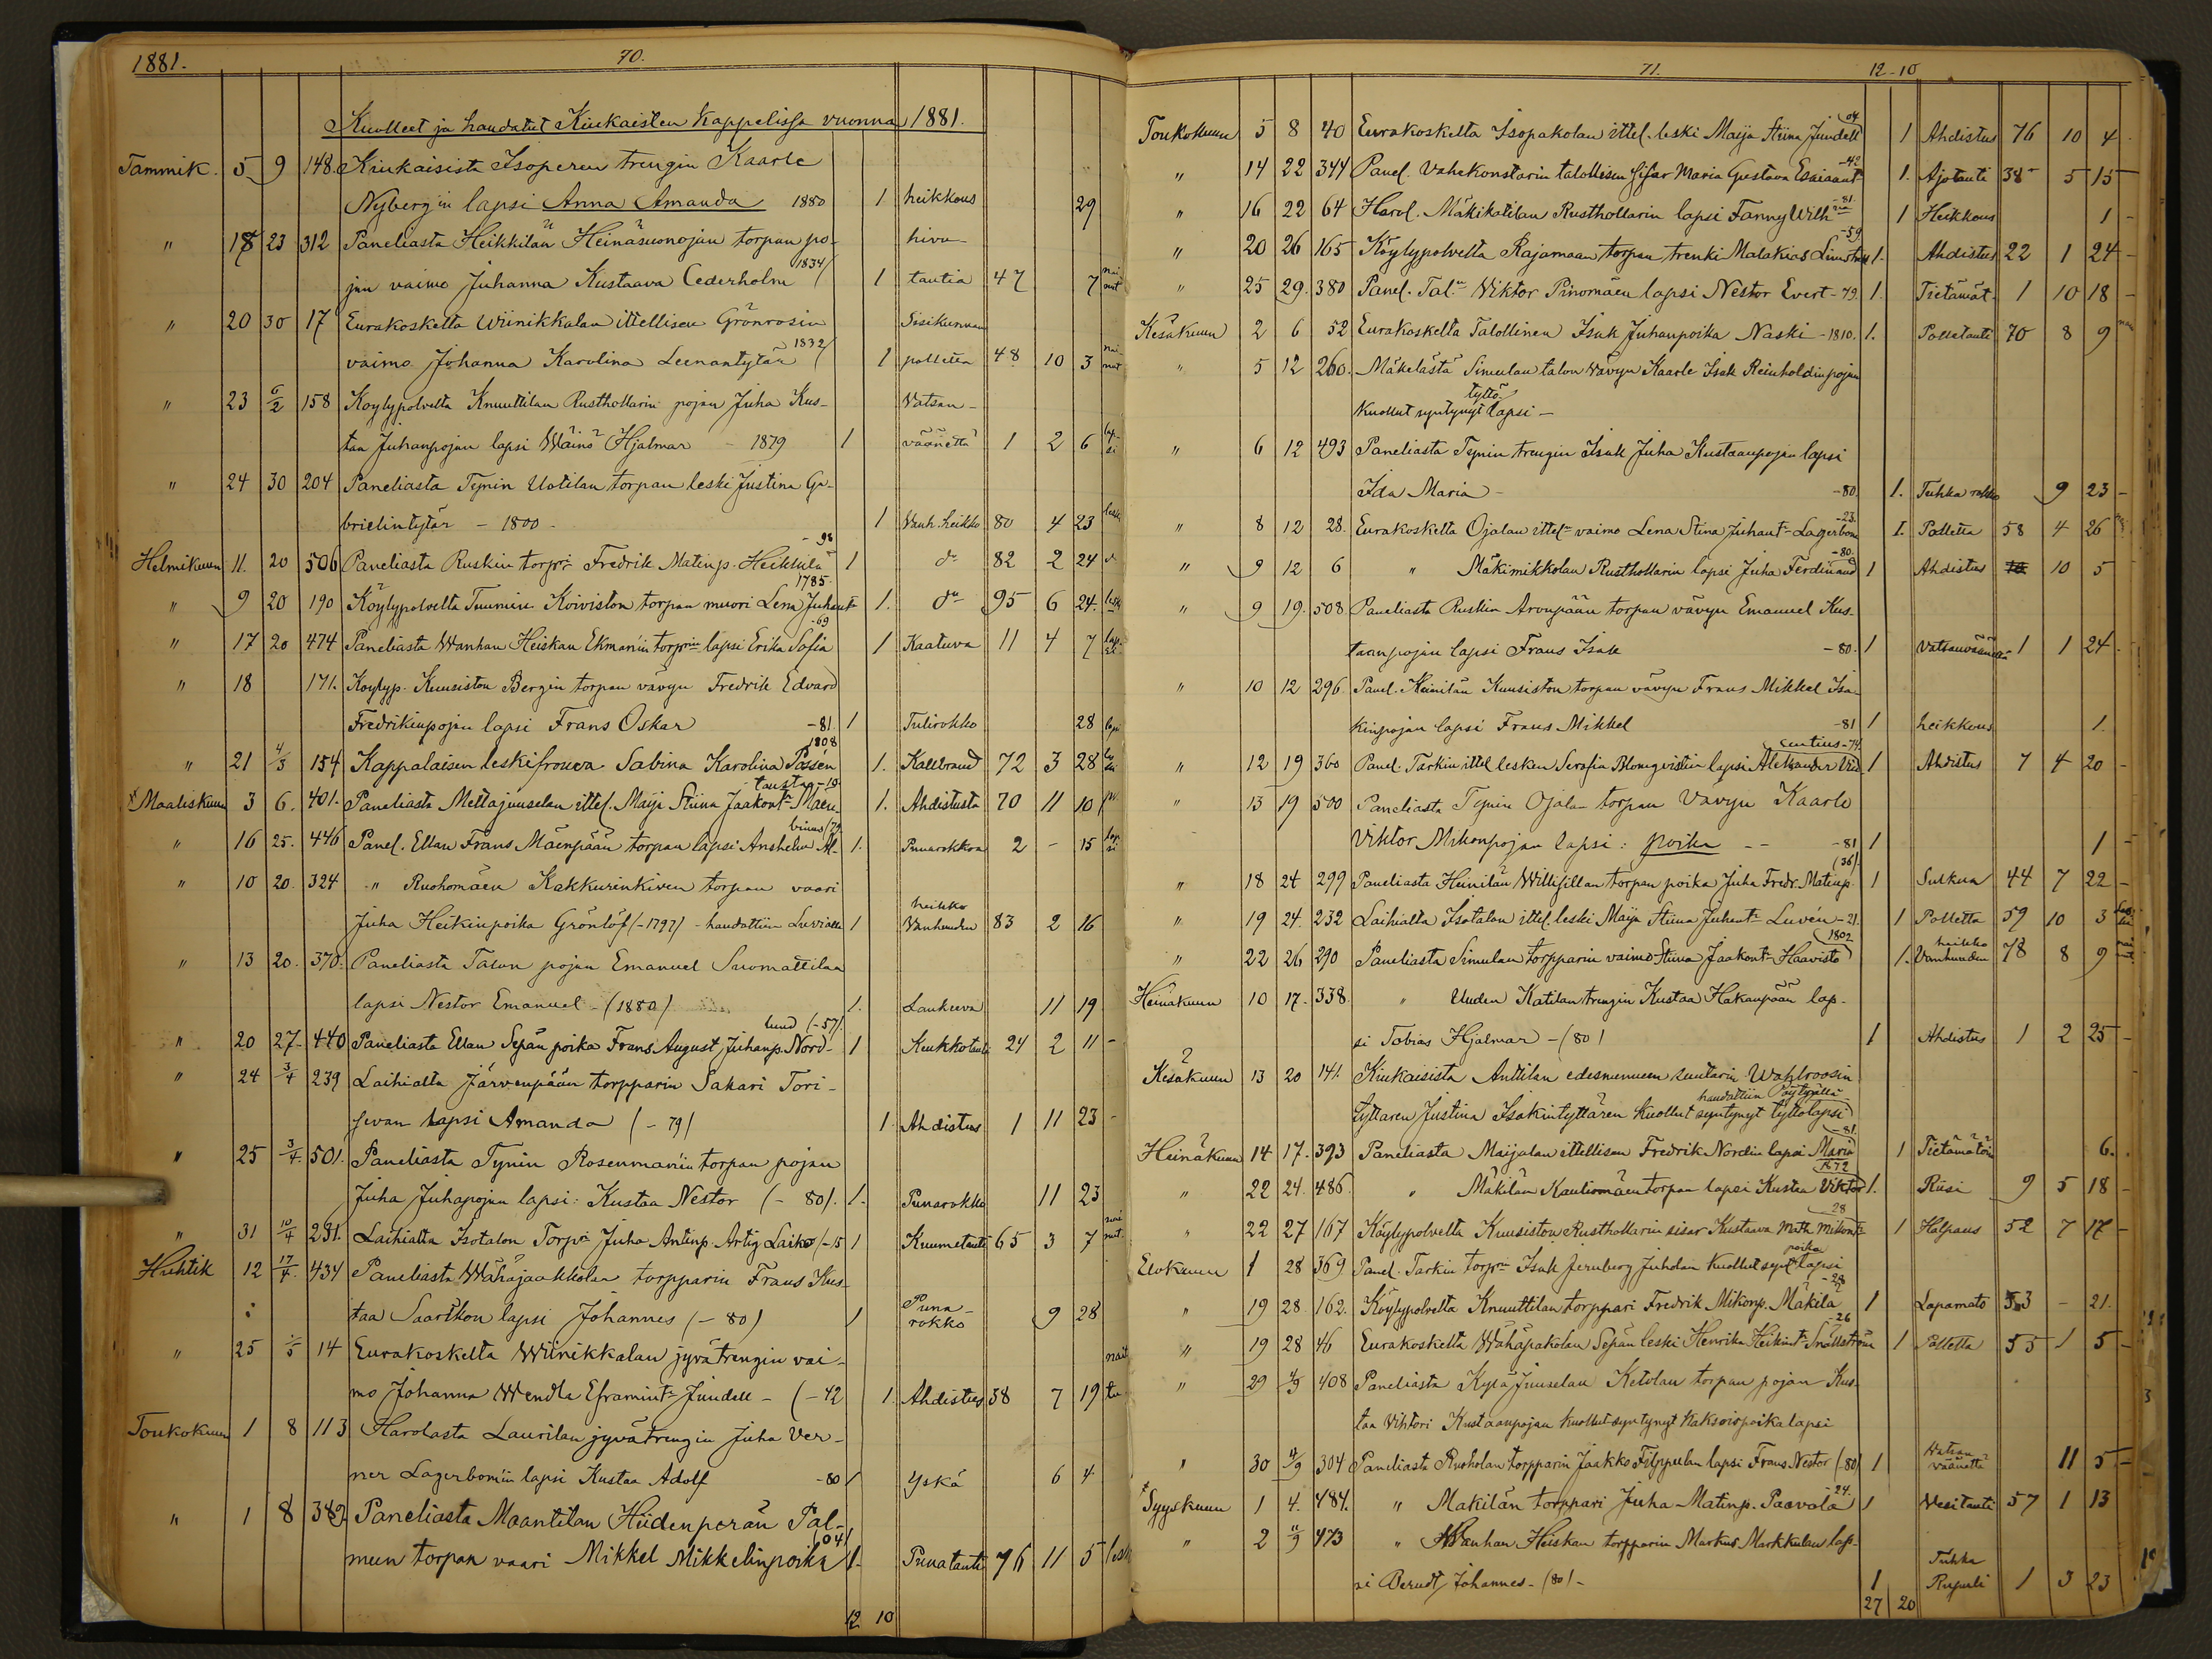 1881. 70.
Kuolleet ja haudatut Kiukaisten Kappelissa vuonna 1881.
Tammik. 5 9 148. Kiukaisista Isoperen trengin Kaarle
Nybergin lapsi Anna Amanda 1880 1 heikkous 29
" 18 23 312 Paneliasta Heikkilän Heinäsuonojan torpan po- hivu-
jan vaimo Juhanna Kustaava Cederholm 1834 1 tautia 47 7
" 20 30 17 Eurakoskelta Wiinikkalan ittellisen Grönrosin Sisikunnan
vaimo Johanna Karolina Leenantytär 1832 1 polletta 48 10 3
" 23 6/2 158 Köylypolvelta Knuuttilan Rusthollarin pojan Juha Kus- Vatsan-
taa Juhanpojan lapsi Wäinö Hjalmar - 1879 1 väänettä 1 2 6 lapsi
" 24 30 204 Paneliasta Tynin Uotilan torpan leski Justina Ga-
brielintytär - 1800 - 1 Vanh. heikko 80 4 23 leski
Helmikuun 11. 20 506 Paneliasta Ruskin torpri Fredrik Matinp. Heikkilä - 98 1 do 82 2 24
" 9 20 190 Köylypolvelta Tuumin Koiviston torpan muori Lena Juhant. 1785 1. do 95 6 24. lesk
" 17 20 474 Paneliasta Wanhan Heiskan Ekmanin torprin lapsi Erika Sofia -69 1 Kaatuva 11 4 7
" 18 171. Köylyp. Kuusiston Bergin torpan vävyn Fredrik Edvard
Fredrikinpojan lapsi Frans Oskar -81. 1 Tulirokko 28
" 21 4/3 154 Kappalaisen leskifrouva Sabina Karolina Passén 1808 1. Kallbrand 72 3 28
Maaliskuun 3 6. 401. Paneliasta Mettäjuuselan ittel. Maija Stiina Jaakont. Mäen-
tausta -10 1. Ahdistusta 70 11 10
" 16 25. 446 Panel. Ellan Frans Mäenpään torpan lapsi Anshelm Al-
binus (79 1. Punarokkoa 2 - 15 lapsi
" 10 20. 324 " Ruohomäen Kakkurinkiven torpan vaari
Juha Heikinpoika Grönlöf (-1797) - haudattiin Luvialla 1 heikko Vanhuuden 83 2 16
" 13 20. 370. Paneliasta Talon pojan Emanuel Suomattilan
lapsi Nestor Emanuel - (1880) 1. Laukeeva 11 19
" 20 27- 440 Paneliasta Ellan Sepän poika Frans August Juhanp. Nord-
lund (-57). 1 Keukkotauti 24 2 11 -
" 24 3/4 239 Laihialta Järvenpään torpparin Sakari Tori-
sevan lapsi Amanda (-79) 1 Ahdistus 1 11 23 -
" 25 3/4. 501. Paneliasta Tynin Rosenmanin torpan pojan
Juha Juhapojan lapsi: Kustaa Nestor (- 80). 1. Punarokko 11 23
" 31 10/4 281. Laihialta Isotalon Torpri Juha Antinp. Artig Laiko (-15 1 Kuumetauti 65 3 7
Huhtik 12 17/4. 434 Paneliasta Wähäjaakkolan torpparin Frans Kus-
taa Saariston lapsi Johannes (- 80) 1 Puna-rokko 9 28
" 25 1/5 14 Eurakoskelta Wiinikkalan jyvätrengin vai-
mo Johanna Wendla Eframint. Jindell - (-42 1. Ahdistus 38 7 19
Toukokuun 1 8 113 Harolasta Laurilan jyvätrengin Juha Ver-
ner Lagerbomin lapsi Kustaa Adolf -80 1 Yskä 6 4
" 1 8 382 Paneliasta Maantilan Hiidenperän Pal-
meen torpan vaari Mikkel Mikkelinpoika 04 1. Punatauti 76 11 5 lesk
12 10
71. 12-10
Toukokuun 5 8 40 Eurakoskelta Isopakolan ittel. leski Maija Stiina Jindell 04 1 Ahdistus 76 10 4
" 14 22 344 Panel. Vahekonstarin talollisen sisar Maria Gustava Esaiaant. -42 1. Ajotauti 38 5 15
" 16 22 64 Harol. Mäkikatilan Rusthollarin lapsi Fanny Wilh. -81. 1 Heikkous 1 -
" 20 26 165 Köylypolvelta Rajamaan torpan trenki Malakias -59 1. Ahdistus 22 1 24 -
" 25 29. 380 Panel. Tal. Wiktor Pinomäen lapsi Nestor Evert - 79. 1. Tietämät. 1 10 18 -
Kesäkuun 2 6 52 Eurakoskelta Talollinen Isak Juhanpoika Naski - 1810. 1. Polletauti 70 8 9
" 5 12 260. Mäkelästä Simulan talon vävyn Kaarle Isak Reinholdinpojan
kuollut syntynyt tyttö lapsi -
" 6 12 493 Paneliasta Tynin trengin Isak Juha Kustaanpojan lapsi
Ida Maria - -80. 1. Tuhka rokko 9 23 -
" 8 12 28. Eurakoskelta Ojalan ittel. vaimo Lena Stina Juhant. Lagerbom -23. 1. Polletta 58 4 26
" 9 12 6 " Mäkimikkolan Rusthollarin lapsi Juha Ferdinand -80. 1 Ahdistus 10 5
" 9 19. 508. Paneliasta Ruskin Aronpään torpan vävyn Emanuel Kus-
taanpojan lapsi Frans Isak -80. 1 Vatsanväänettä 1 1 24.
" 10 12 296. Panel. Heinilän Kuusiston torpan vävyn Frans Mikkel Isa-
kinpojan lapsi Frans Mikkel -81 1 heikkous 1.
" 12 19 360 Panel. Tarkin ittel lesken Serafia Blomqvistin lapsi Aleksander Vin-
centius -74. 1 Ahdistus 7 4 20 -
" 13 19 500 Paneliasta Tynin Ojala torpan Vävyn Kaarle
Viktor Mikonpojan lapsi: poika - - -81 1 1 -
" 18 24 299 Paneliasta Heinilän Willisillan torpan poika Juha Fredr. Matinp. (36). 1 Sulkua 44 7 22 -
" 19 24. 232 Laihialta Isotalon ittel. leski Maija Stiina Juhant. Luvén -21. 1 Polletta 59 10 3
" 22 26 290 Paneliasta Simulan torpparin vaimo Stiina Jaakont. Haavisto 1802 1. heikko Vanhuuden 78 8 9
Heinäkuun 10 17. 338. " Uuden Katilan trengin Kustaa Hakanpään lap-
si Tobias Hjalmar - (80) 1 Ahdistus 1 2 25 -
Kesäkuun 13 20 141. Kiukaisista Anttilan edesmenneen suutarin Wahlroosin
tyttären Justina Isakintyttären kuollut syntynyt tyttölapsi haudattiin Pöytyällä -81.
Heinäkuun 14 17. 393 Paneliasta Maijalan ittellisen Fredrik Nordin lapsi Maria 1 Tietämätöin 6.
" 22 24. 486. " Mäkilän Kauliomäen torpan lapsi Kustaa Viktor 1872 1. Riisi 9 5 18 -
" 22 27 167 Köylypolvelta Kuusiston Rusthollarin sisar Kustava Math. Mikont. 28 1 Halpaus 52 7 17 -
Elokuun 1 28 369 Panel. Tarkin torprin Isak Jernberg Juhdan kuollut synt. poika lapsi
" 19 28. 162. Köylypolvelta Knuuttilan torppari Fredrik Mikonp. Mäkilä -28 1 Lapamato 53 - 21.
" 19 28 46 Eurakoskelta Wähäpakolan Sepän leski Henrika Heikint. Snällström -26 1 Polletta 55 1 5 -
" 29 4/9 408 Paneliasta Kylä Juuselan Ketolan torpan pojan Kus-
taa Vihtori Kustaanpojan kuollut syntynyt kaksoispoikalapsi
" 30 4/9 304 Paneliasta Ruoholan torpparin Jaakko Filppulan lapsi Frans Nestor (-80) 1 Watsan väänettä 11 5 -
Syyskuun 1 4. 484. " Mäkilän torppari Juha Matinp. Paavola -24. 1 Vesitauti 57 1 13
" 2 11/9 473 " Wanhan Heiskan torpparin Markus Markkulan lap-
si Berndt Johannes - (80) - 1 Tuhka Rupuli 1 3 23
27 20